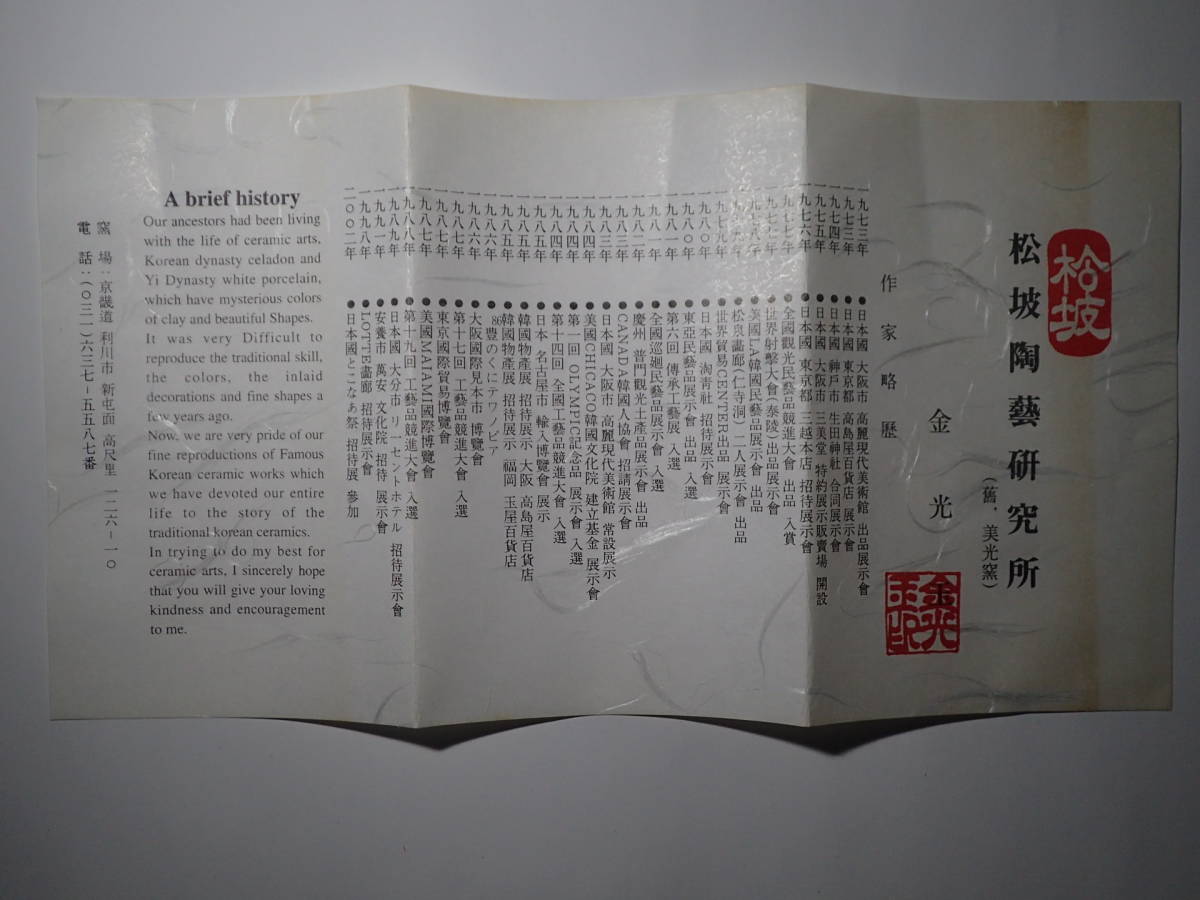 松坡
松坡陶藝研究所
(舊．美光窯)
金光
作家略歷
一九七三年 ●日本國 大阪市 高麗現代美術館 出品展示會
一九七三年 ●日本國 東京都 高島屋百貨店 展示會
一九七四年 ●日本國 神戶市 生田神社 合同展示會
一九七五年 ●日本國 大阪市 三美堂 特約展示販賣場 開設
一九七六年 ●日本國 東京都 三越本店 招待展示會
一九七七年 ●全國觀光民藝品競進大會 出品 入賞
一九七八年 ●世界射擊大會(泰陵)出品展示會
一九七八年 ●美國LA韓國民藝品展示會 出品
一九七九年 ●松泉畵廊(仁寺洞) 二人展示會 出品
一九七九年 ●世界貿易CENTER出品 展示會
一九八〇年 ●日本國 淘靑社 招待展示會
一九八〇年 ●東亞民藝品展示會 出品 入選
一九八一年 ●第六回 傳承工藝展 入選
一九八一年 ●全國巡廻民藝品展示會 入選
一九八二年 ●慶州 普門觀光土產品展示會 出品
一九八三年 ●CANADA韓國人協會 招請展示會
一九八三年 ●日本國 大阪市 高麗現代美術館 常設展示
一九八四年 ●美國CHICACO韓國文化院 建立基金 展示會
一九八四年 ●第一回 OLYMPIC記念品 展示會 入選
一九八四年 ●第十四回 全國工藝品競進大會 入選
一九八五年 ●日本 名古屋市 輸入博覽會 展示
一九八五年 ●韓國物產展 招待展示 大阪 高島屋百貨店
一九八五年 ●韓國物產展 招待展示 福岡 玉屋百貨店
一九八六年 ●86豊のくにテワノビア
一九八六年 ●大阪國際見本市 博覽會
一九八七年 ●第十七回 工藝品競進大會 入選
一九八七年 ●東京國際貿易博覽會
一九八七年 ●美國MAIAMI國際博覽會
一九八八年 ●第十九回 工藝品競進大會 入選
一九八九年 ●日本國 大分市 リ一セントホテル 招待展示會
一九九一年 ●安養市 萬安 文化院 招待 展示會
一九九八年 ●LOTTE畵廊 招待展示會
二〇〇二年 ●日本國とこなあ祭 招待展 參加
A brief history
Our ancestors had been living
with the life of ceramic arts,
Korean dynasty celadon and
Yi Dynasty white porcelain,
which have mysterious colors
of clay and beautiful Shapes.
It was very Difficult to
reproduce the traditional skill,
the colors, the inlaid
decorations and fine shapes a
few years ago.
Now, we are very pride of our
fine reproductions of Famous
Korean ceramic works which
we have devoted our entire
life to the story of the
traditional korean ceramics.
In trying to do my best for
ceramic arts, I sincerely hope
that you will give your loving
kindness and encouragement
to me.
窯 場：京畿道 利川市 新屯面 高尺里 一二六－一〇
電 話：(〇三一)六三七－五五八七番